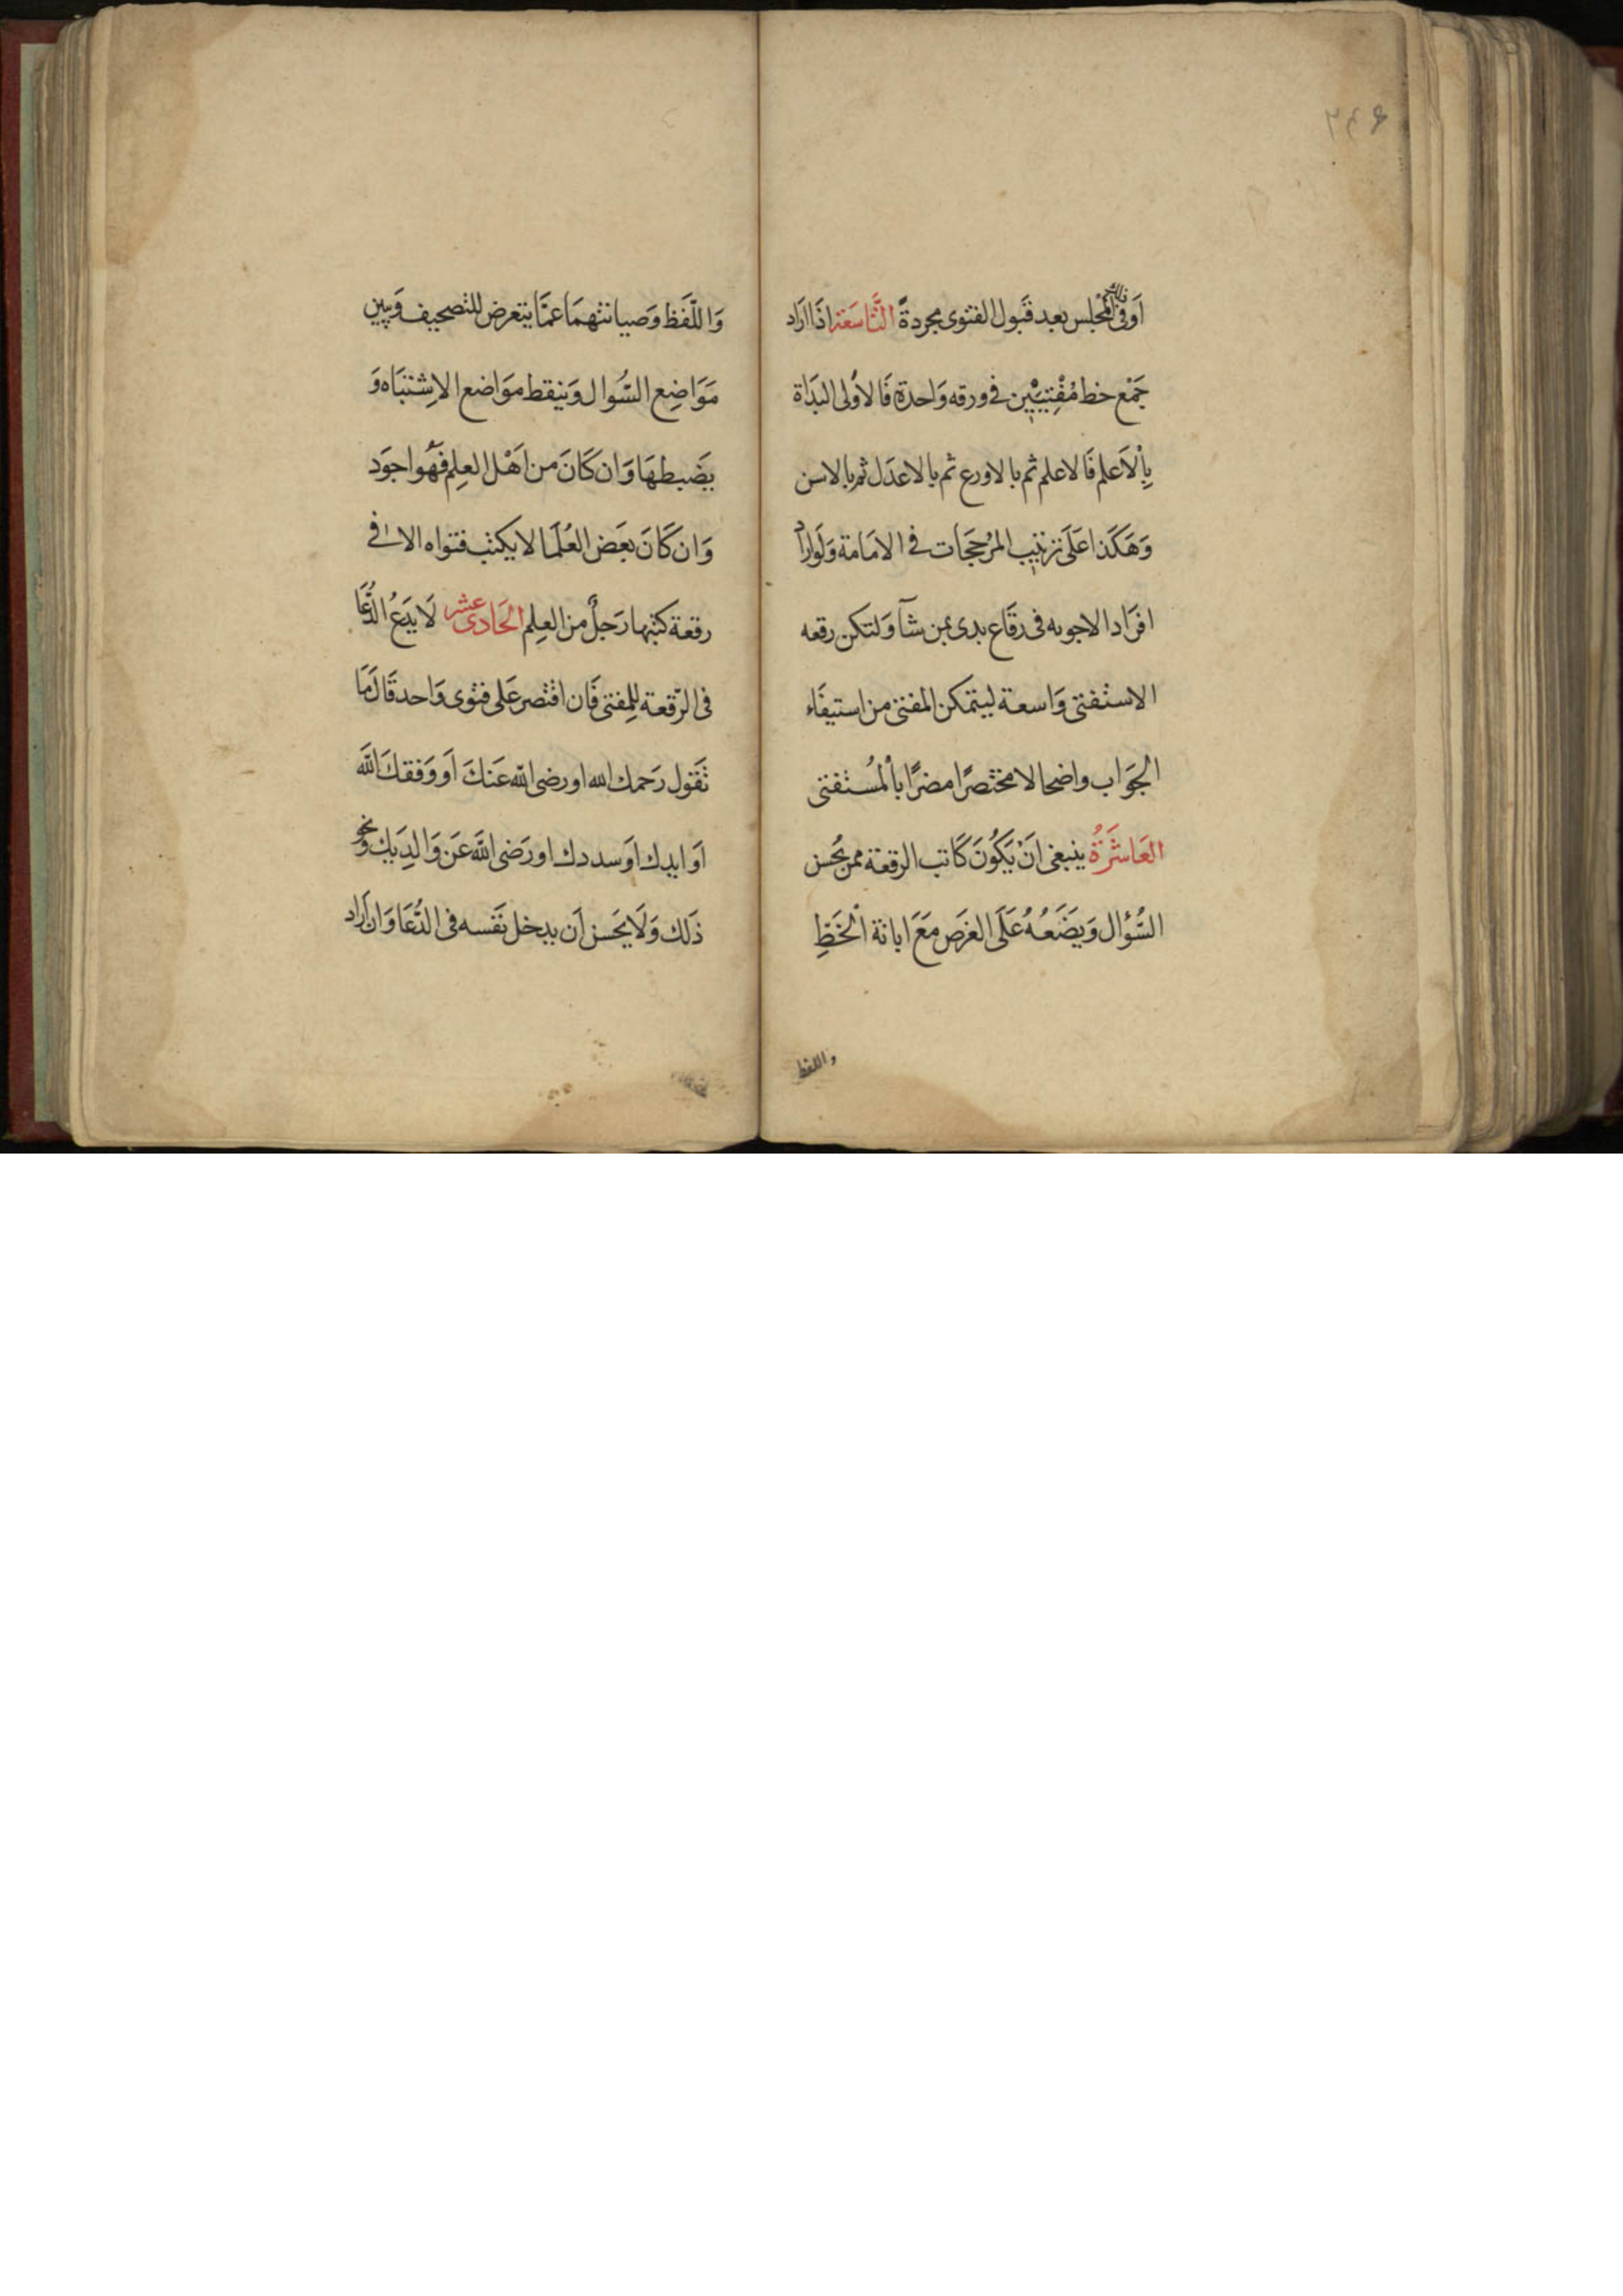 ٢٤٤
اَوفى ذلك المجْلِس بعد قَبول الفتوى مجردةً التَّاسَعَة اذَا ارَاد
جَمْع خط مُفْتِيَيْن فى ورقه وَاحدة فَالاَولى البَدَاة
بِاْلاَعلم فَالاعلم ثم بالاورع ثم بالاعدَل ثم بالاسن
وَهَكَذا عَلَى تزتيب المرُجحَجَات فى الامَامة وَلَواراد
افرَاد الاجوبه فى رقَاع بدى بمن شآ وَلتكن رقعه
الاستفتى وَاسعة ليتمكن المفتى من استيفَاء
الجَوَاب واضحا لا مختصرًا مضرًا باْلمُستفتى
العَاشَرةُ ينبغى انْ يَكُونَ كَاتب الرقعة ممن يحُسن
السُّؤال وَيضَعُهُ عَلَى الغرَض مَعَ ابانة الْخَطِّ
واللفظ
وَاللّفَظ وَصيانتهمَا عمَّا يتعرض للتصحيف وَيبين
مَوَاضِع السُّوال وَينقط موَاضع الاِشتبَاه وَ
يضَبطهَا وَان كَانَ من اَهْل العِلِم فهُو اجوَد
وَان كَانَ بعَض العُلَمَا لا يكتب فتواه الا فى
رقعة كتبها رَجلٌ من العِلِم الحَادى عشر لَا يَدَعُ الدُّعَا
فى الرّقعة للِمفتى فَان اقتصر عَلى فتوى وَاحد قَالَ مَا
تَقول رَحمك الله او رضى الله عَنكَ اَو وَفقكَ اللَّه
اَو ايدك اوَ سددك او رَضى اللَّه عَن وَالِدِيَك وَنحو
ذَلك وَلَا يحَسن اَن يدخل نَفسه فى الدُّعَا وَان اَرَاد